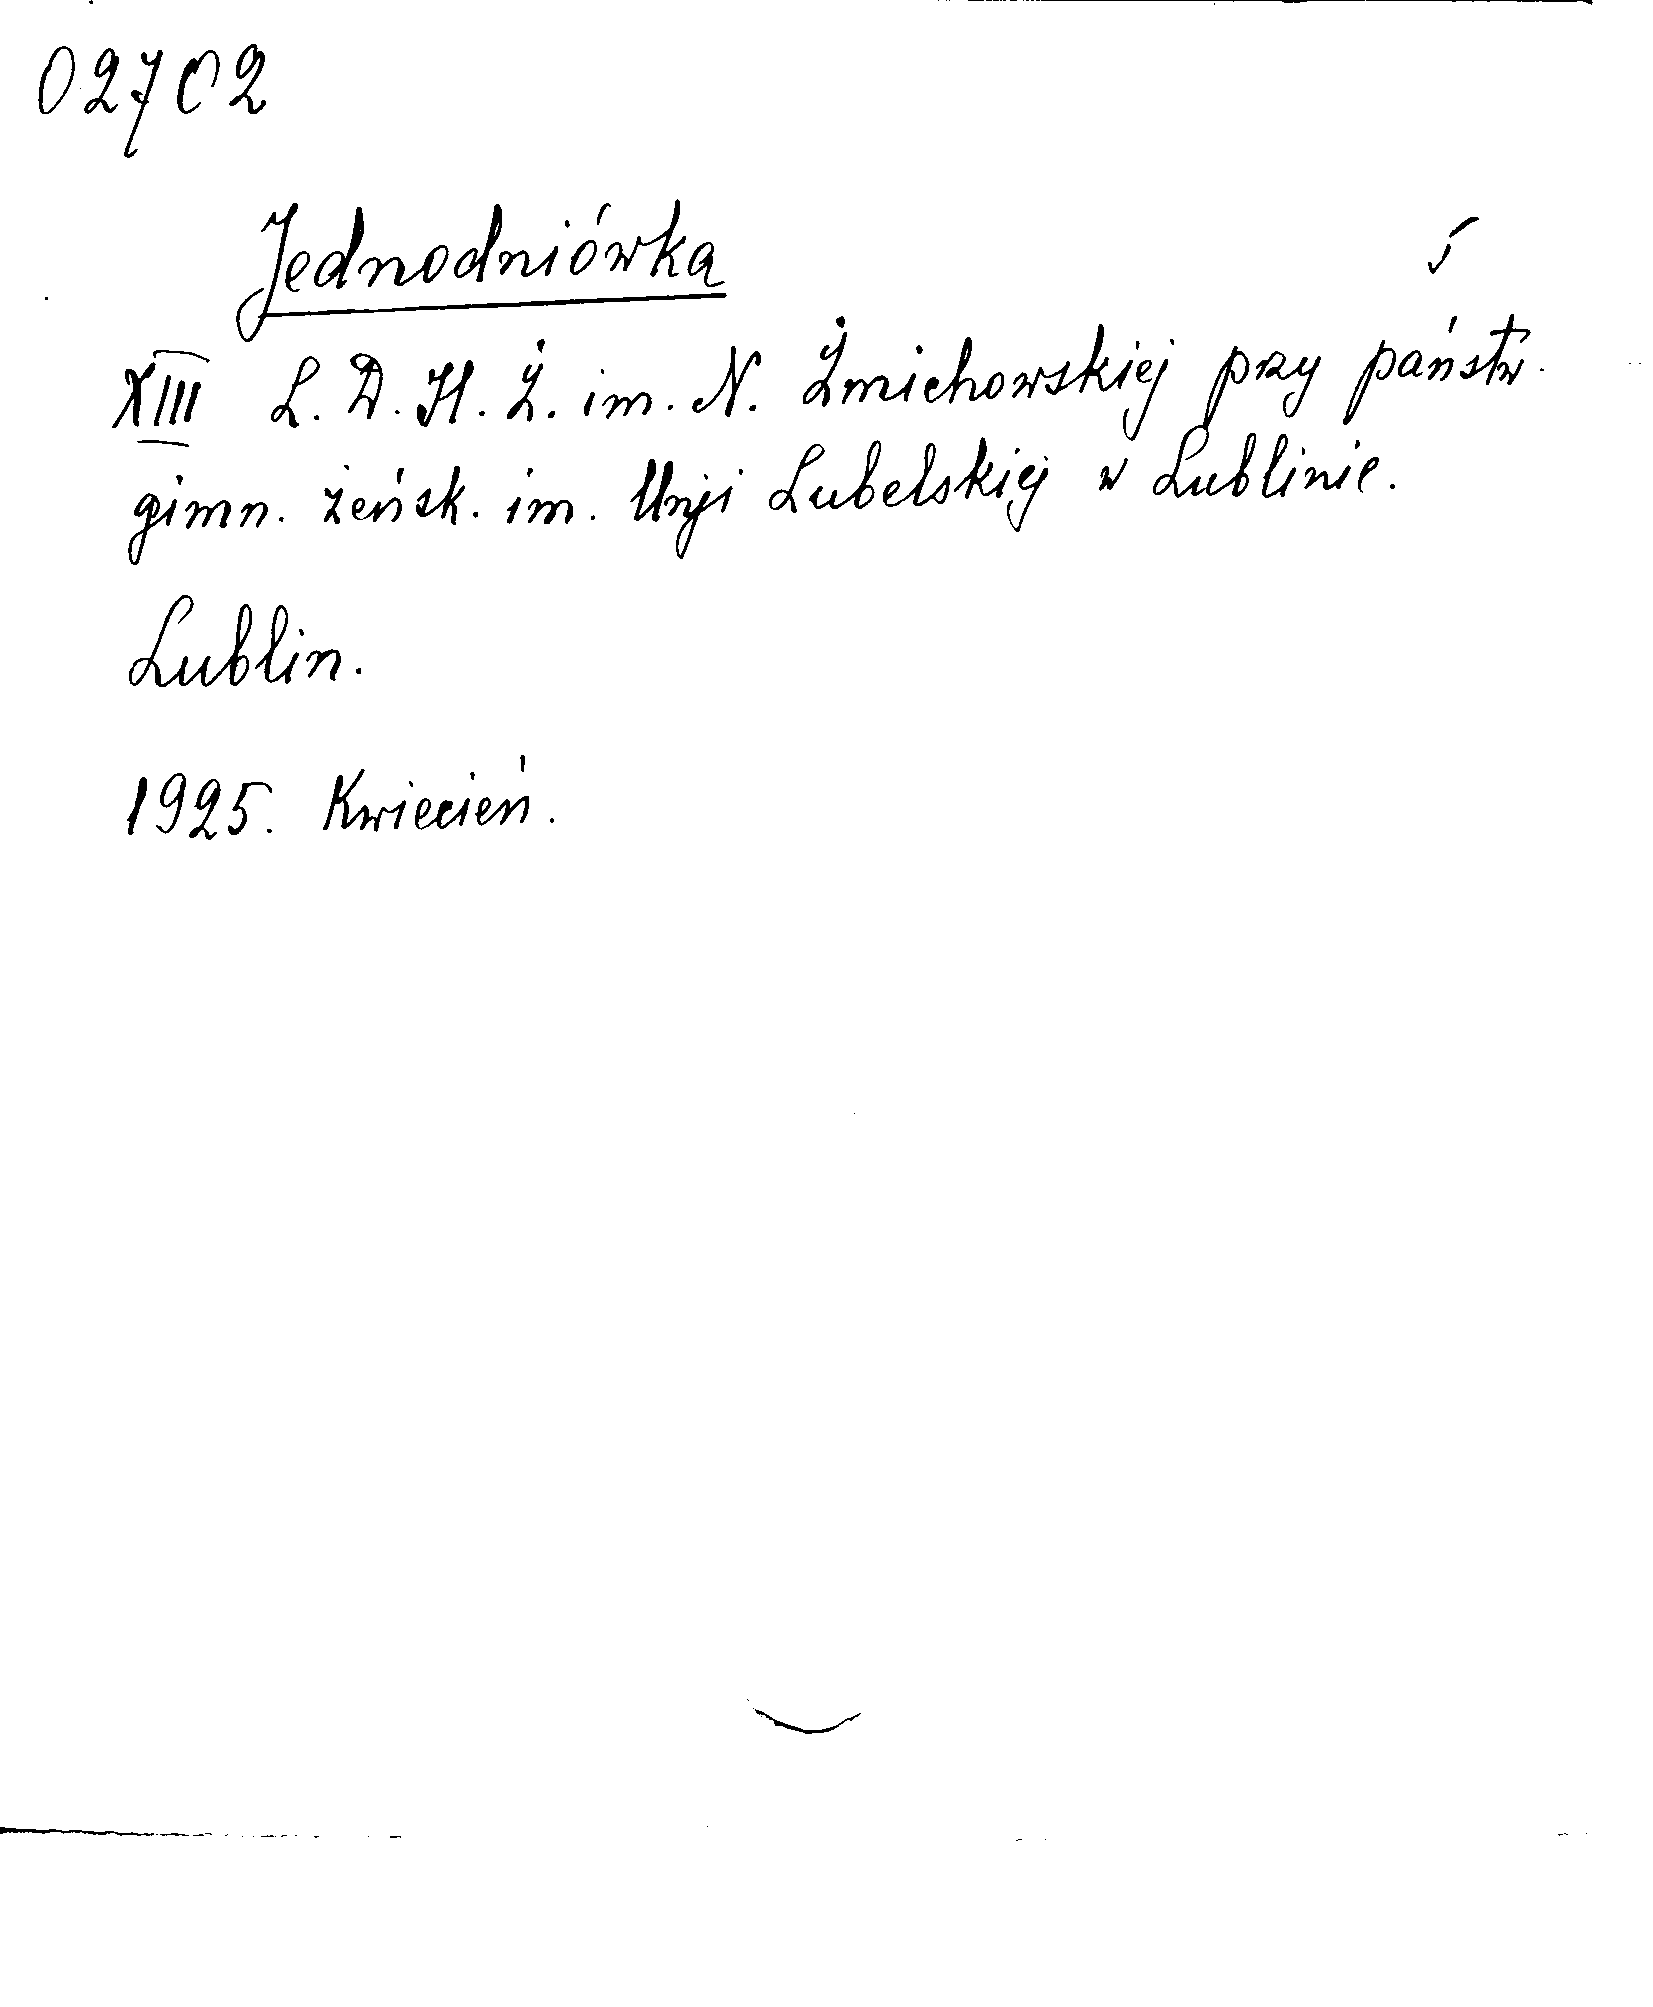 02702
Jednodniówka
XIII L. D. H. Ż. im. N. Żmichowskiej przy państw.
gimn. żeńsk. im. Unji Lubelskiej w Lublinie.
Lublin.
1925. Kwiecień.